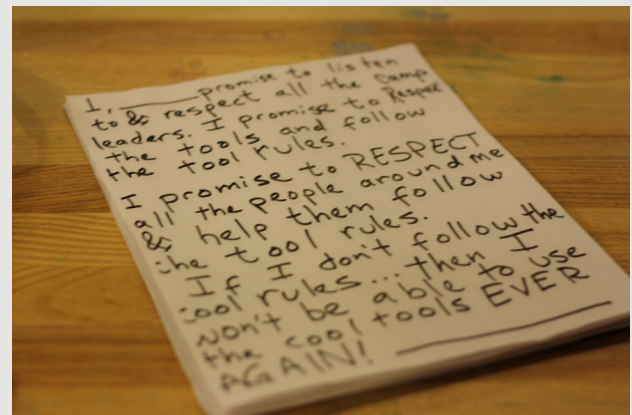 I, ______ promise to listen
to & respect all the camp
leaders. I promise to Respec
the tools and follow
the tool rules.
I promise to RESPECT
all the people around me
& help them follow
the tool rules.
If I don't follow the
tool rules...then I
won't be able to use
the cool tools EVER
AGAIN! ______